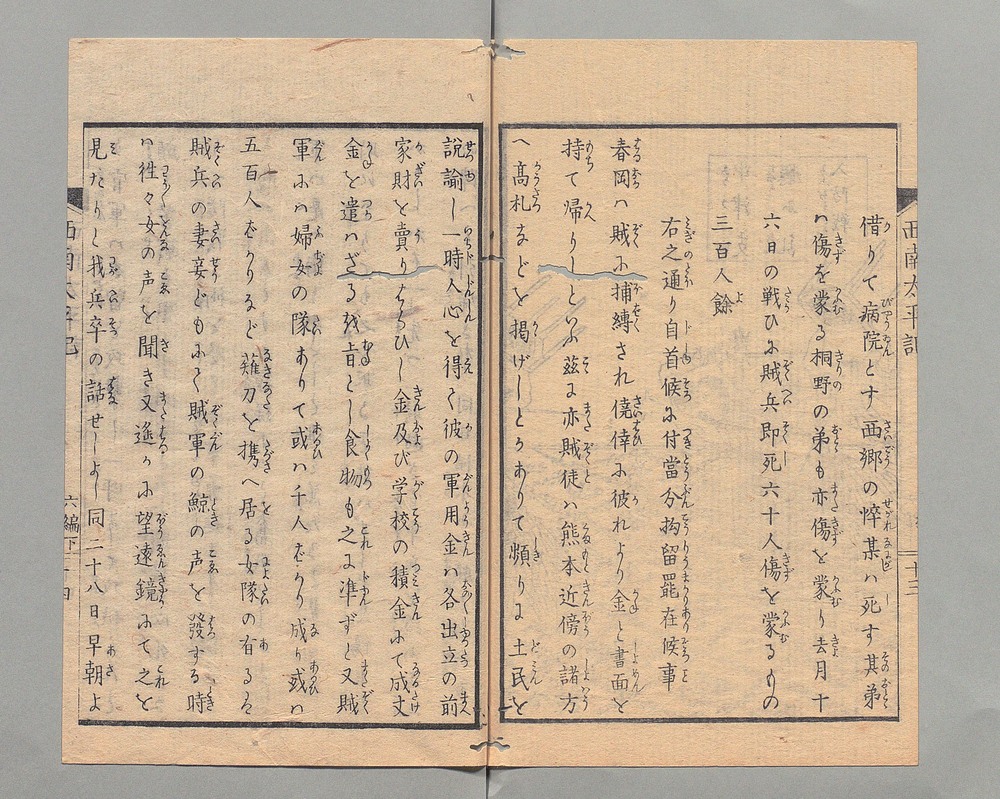 借りて病院とす西郷の悴某ハ死す其弟
ハ傷を蒙る桐野の弟も亦傷を蒙り去月十
六日の戦ひに賊兵即死六十人傷を蒙るもの
三百人餘
右之通り自首候に付當分拘留罷在候事
春岡ハ賊に捕縛され僥倖に彼れより金と書面を
持て帰りしといふ茲に亦賊徒ハ熊本近傍の諸方
へ高札などを掲げしとかありて頻りに土民を
説諭し一時人心を得て彼の軍用金ハ各出立の前
家財を賣りはらひし金及び学校の積金にて成丈
金を遣ハざるを旨とし食物も之に準ずと又賊
軍にハ婦女の隊ありて或ハ千人ばかり成り或ハ
五百人ばかりなど薙刀を携へ居る女隊の有るハ
賊兵の妻妾どもにて賊軍の鯨の声を發する時
ハ徃々女の声を聞き又遙かに望遠鏡にて之を
見たりと我兵卒の話せしよし同二十八日早朝よ
西南太平記
六編下